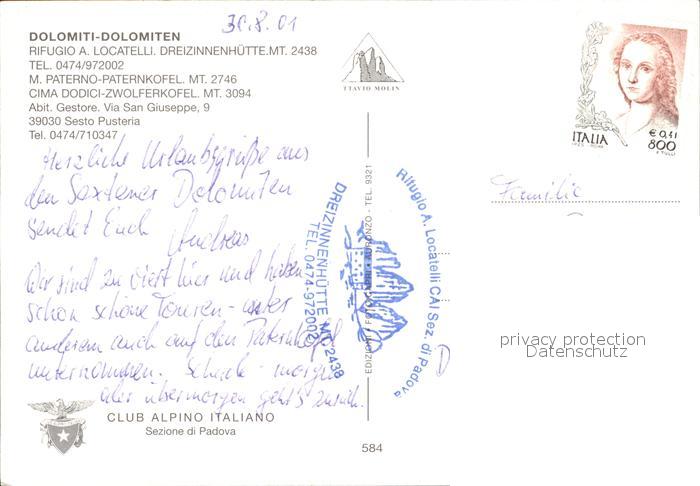 30.8.01
DOLOMITI-DOLOMITEN
RIFUGIO A. LOCATELLI. DREIZINNENHÜTTE.MT. 2438
TEL. 0474/972002
M. PATERNO-PATERNKOFEL. MT. 2746
CIMA DODICI-ZWOLFERKOFEL. MT. 3094
Abit. Gestore. Via San Giuseppe, 9
39030 Sesto Pusteria
Tel. 0474/710347
Herzliche Urlaubsgrüße aus
den Sextener Dolomiten
sendet Euch Andreas
Wir sind zu viert hier und haben
schon schöne Touren - unter
anderem auch auf den Paternkofel
unternommen. Schade - morgen
oder übermorgen geht's zurück.
CLUB ALPINO ITALIANO
Sezione di Padova
TTAVIO MOLIN
EDIZIONI • AURONZO - TEL. 9321
DREIZINNENHÜTTE MT. 2438
TEL. 0474-972002
Rifugio A. Locatelli CAI Sez. di Padova
584
ITALIA
€ 0,41
800
Familie
privacy protection
Datenschutz